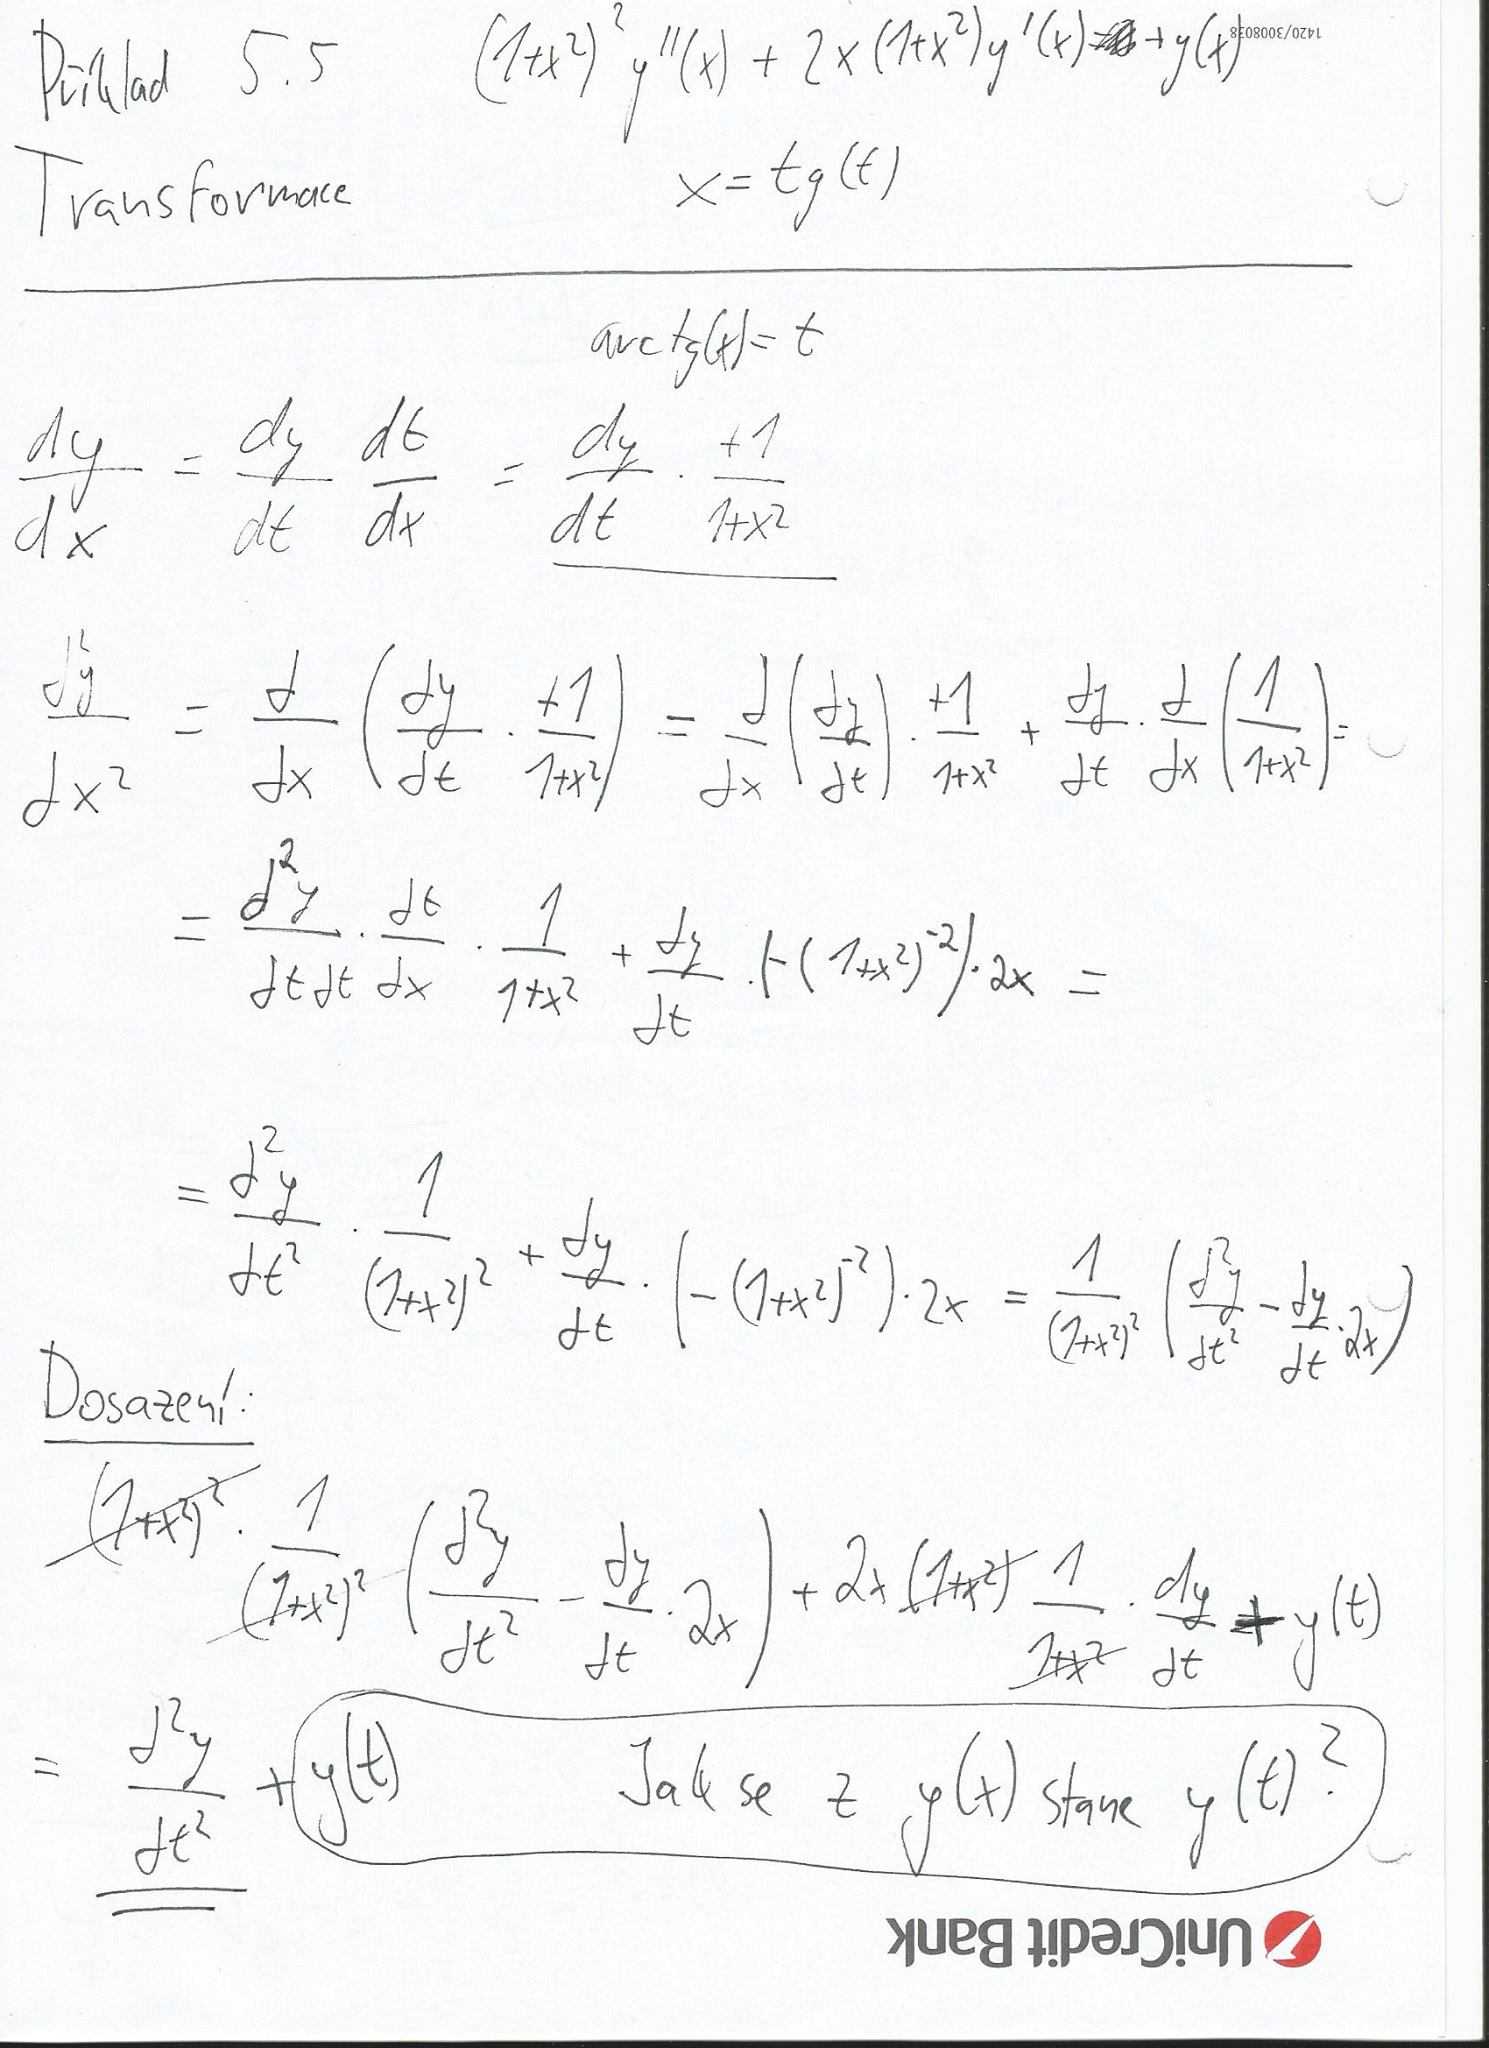 Příklad 5.5 (1+x²)² y''(x) + 2x(1+x²)y'(x) + y(x)
1420/3008038
Transformace x = tg(t)
arctg(x) = t
dy/dx = dy/dt dt/dx = dy/dt · +1/(1+x²)
d²y/dx² = d/dx (dy/dt · +1/(1+x²)) = d/dx (dy/dt) · +1/(1+x²) + dy/dt · d/dx (1/(1+x²)) =
= d²y/(dt dt) · dt/dx · 1/(1+x²) + dy/dt · (-(1+x²)⁻²) · 2x =
= d²y/dt² · 1/(1+x²)² + dy/dt · (-(1+x²)⁻²) · 2x = 1/(1+x²)² (d²y/dt² - dy/dt · 2x)
Dosazení:
(1+x²)² · 1/(1+x²)² (d²y/dt² - dy/dt · 2x) + 2x (1+x²) 1/(1+x²) · dy/dt + y(t)
= d²y/dt² + y(t) Jak se z y(x) stane y(t)?
UniCredit Bank